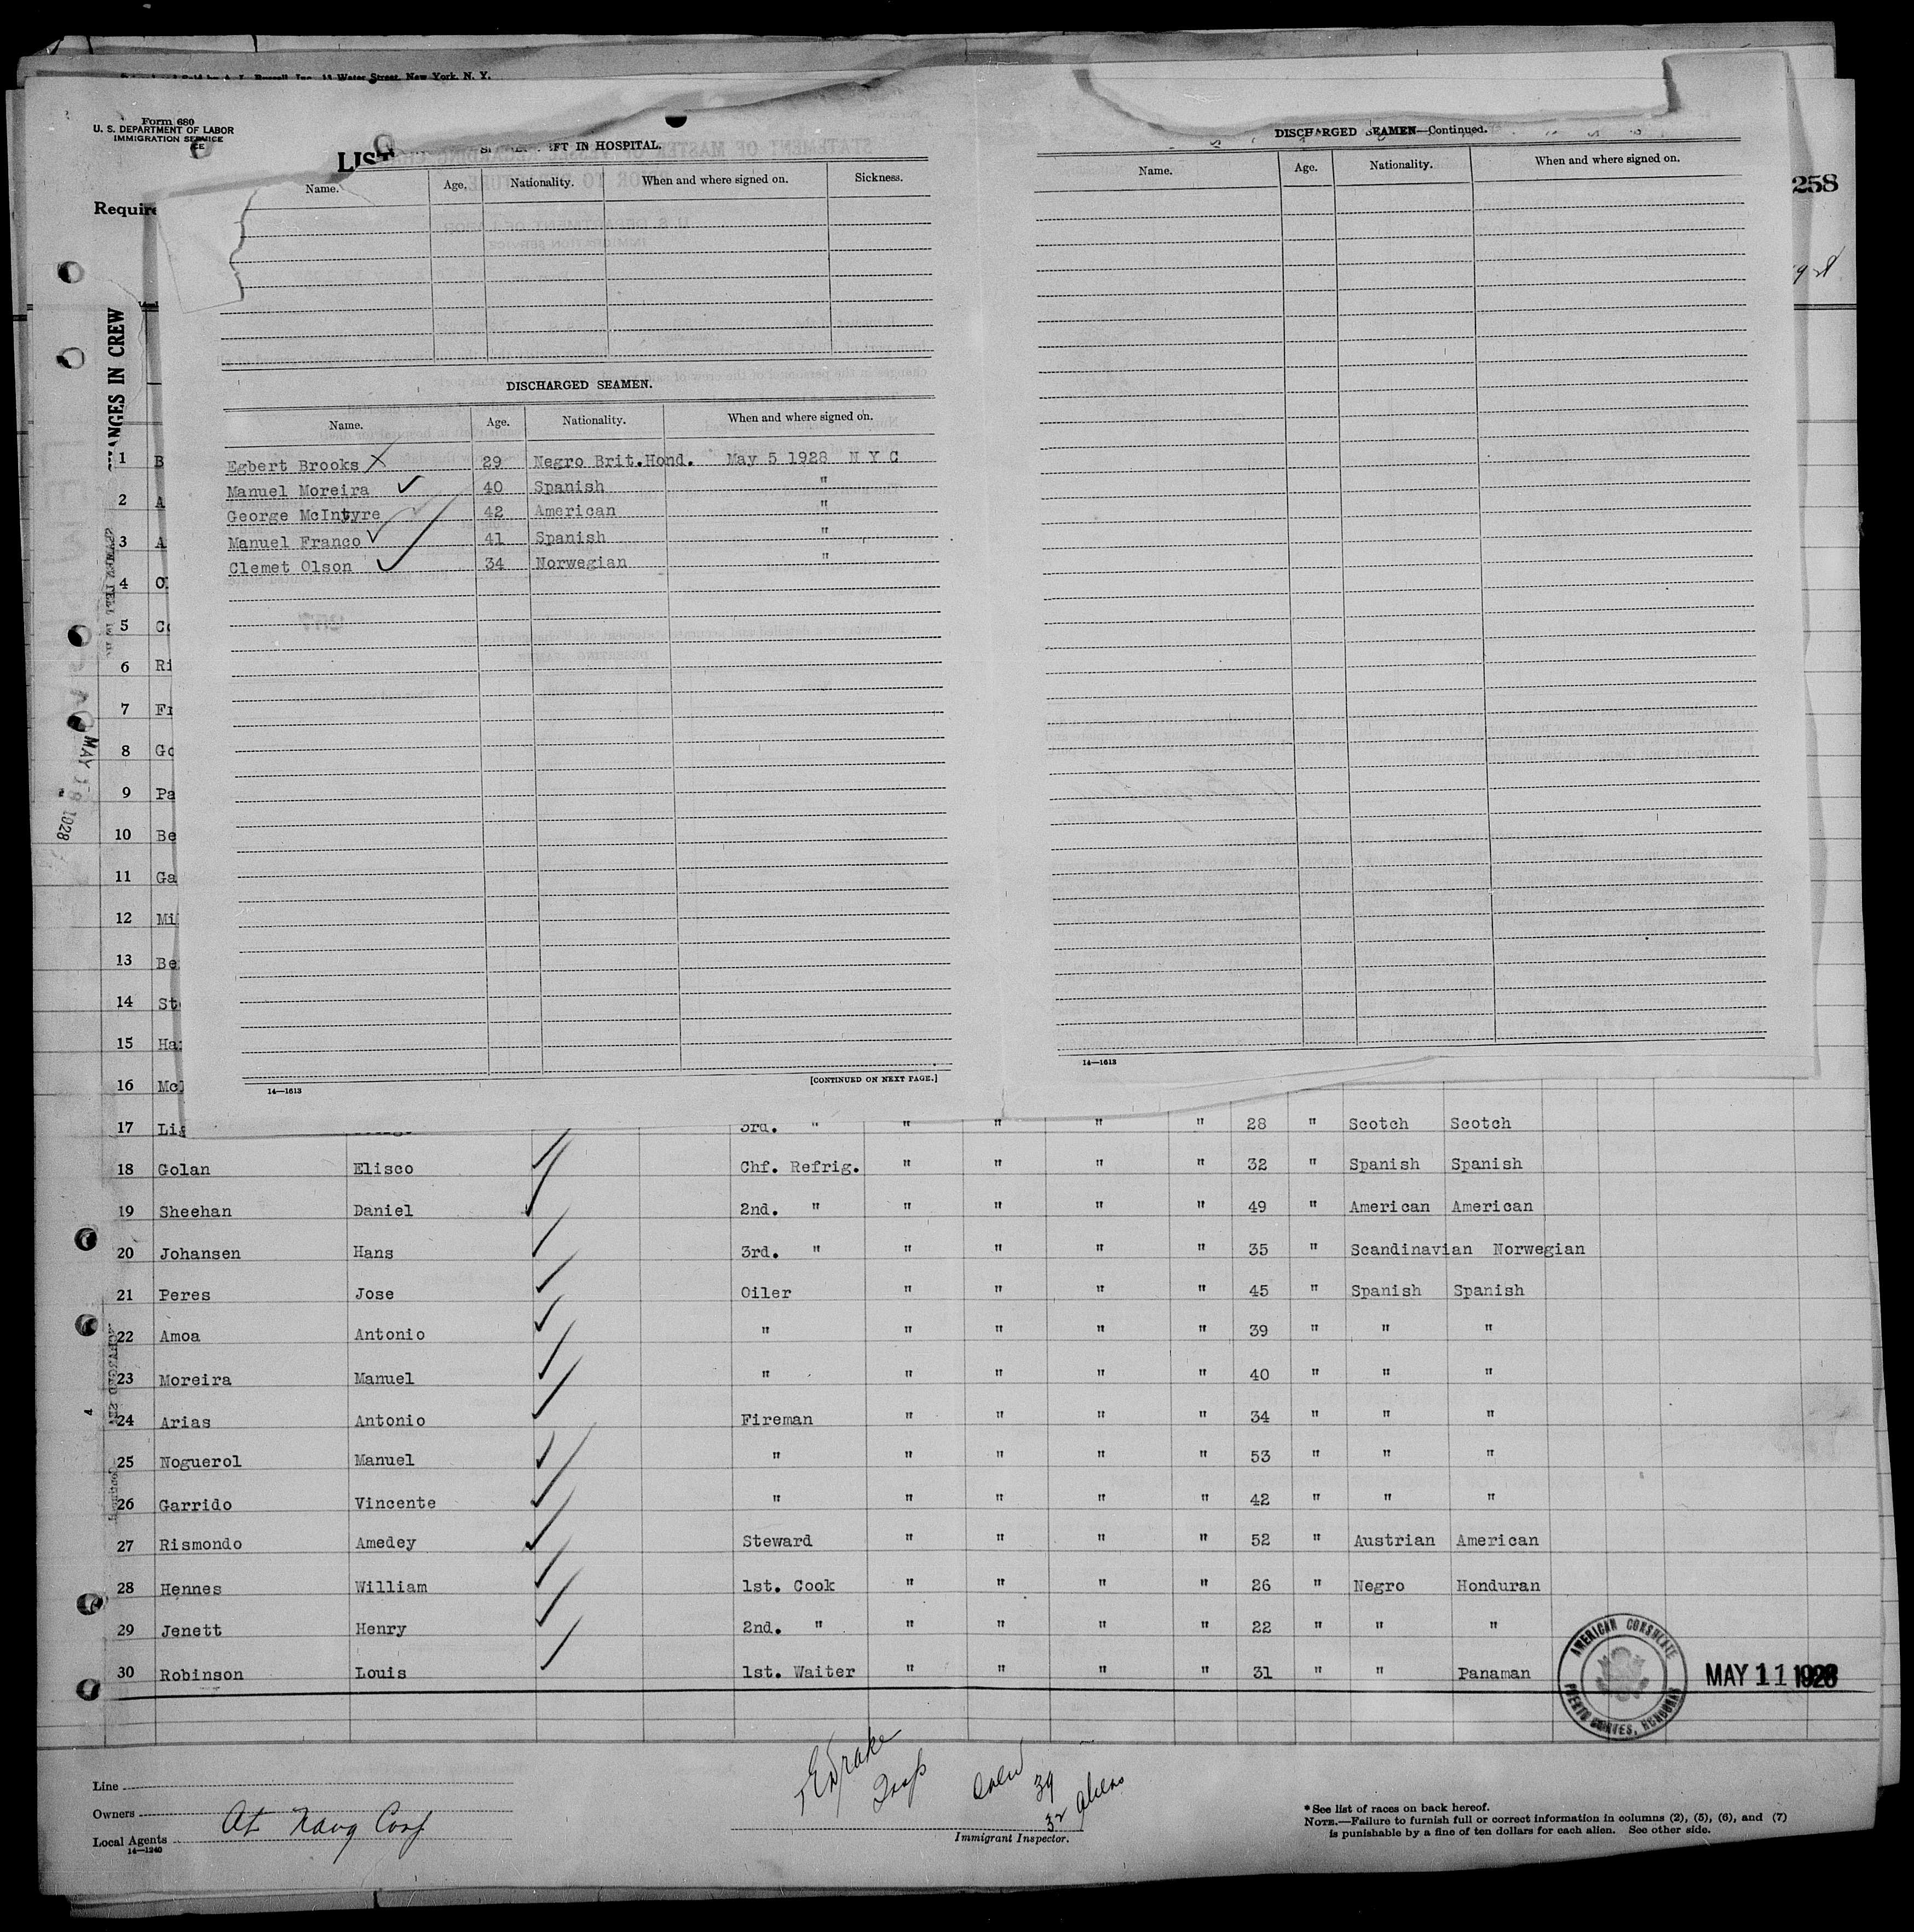 Form 680
U. S. DEPARTMENT OF LABOR
IMMIGRATION SERVICE
LIST
Require
258
CHANGES IN CREW
FT IN HOSPITAL.
Name. Age. Nationality. When and where signed on. Sickness.
DISCHARGED SEAMEN.
Name. Age. Nationality. When and where signed on.
Egbert Brooks X 29 Negro Brit.Hond. May 5 1928 N Y C
Manuel Moreira ✓ 40 Spanish "
George McIntyre ✓ 42 American "
Manuel Franco ✓ 41 Spanish "
Clemet Olson ✓ 34 Norwegian "
14—1613
[CONTINUED ON NEXT PAGE.]
DISCHARGED SEAMEN—Continued.
Name. Age. Nationality. When and where signed on.
14—1613
1 B
2 A
3 A
4 Ol
5 Co
6 Ri
7 Fr
8 Go
9 Pa
10 Be
11 Ga
12 Mi
13 Be
14 St
15 Ha
16 Mc
17 Lig 3rd. " " " " " 28 " Scotch Scotch
18 Golan Elisco ✓ Chf. Refrig. " " " " 32 " Spanish Spanish
19 Sheehan Daniel ✓ 2nd. " " " " " 49 " American American
20 Johansen Hans ✓ 3rd. " " " " " 35 " Scandinavian Norwegian
21 Peres Jose ✓ Oiler " " " " 45 " Spanish Spanish
22 Amoa Antonio ✓ " " " " " 39 " " "
23 Moreira Manuel ✓ " " " " " 40 " " "
24 Arias Antonio ✓ Fireman " " " " 34 " " "
25 Noguerol Manuel ✓ " " " " " 53 " " "
26 Garrido Vincente ✓ " " " " " 42 " " "
27 Rismondo Amedey ✓ Steward " " " " 52 " Austrian American
28 Hennes William ✓ 1st. Cook " " " " 26 " Negro Honduran
29 Jenett Henry ✓ 2nd. " " " " " 22 " " "
30 Robinson Louis ✓ 1st. Waiter " " " " 31 " " Panaman
AMERICAN CONSULATE
PUERTO CORTES, HONDURAS
MAY 11 1928
MAY 18 1928
Line
Owners
Local Agents At Navg Corp
14—1240
Drake
Insp
Crew 39
32 Aliens
Immigrant Inspector.
* See list of races on back hereof.
NOTE.—Failure to furnish full or correct information in columns (2), (5), (6), and (7)
is punishable by a fine of ten dollars for each alien. See other side.